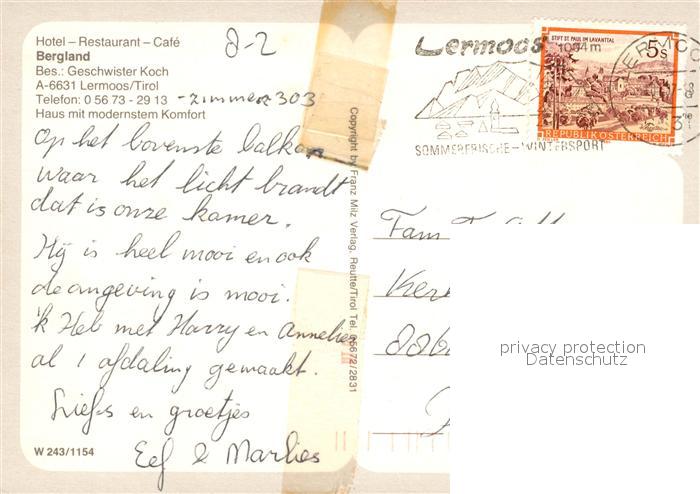 Hotel – Restaurant – Café
Bergland
Bes.: Geschwister Koch
A-6631 Lermoos/Tirol
Telefon: 0 56 73 - 29 13 - zimmer 303
Haus mit modernstem Komfort
8-2
Op het bovenste balkon
waar het licht brandt
dat is onze kamer.
Hij is heel mooi en ook
de omgeving is mooi.
'k Heb met Harry en Annelies
al 1 afdaling gemaakt.
Liefs en groetjes
Eef & Marlies
W 243/1154
Copyright by Franz Milz Verlag, Reutte/Tirol Tel. 05672/2831
Lermoos
1004 m
SOMMERFRISCHE – WINTERSPORT
STIFT ST. PAUL IM LAVANTTAL
5s
REPUBLIK ÖSTERREICH
Fam
privacy protection
Datenschutz